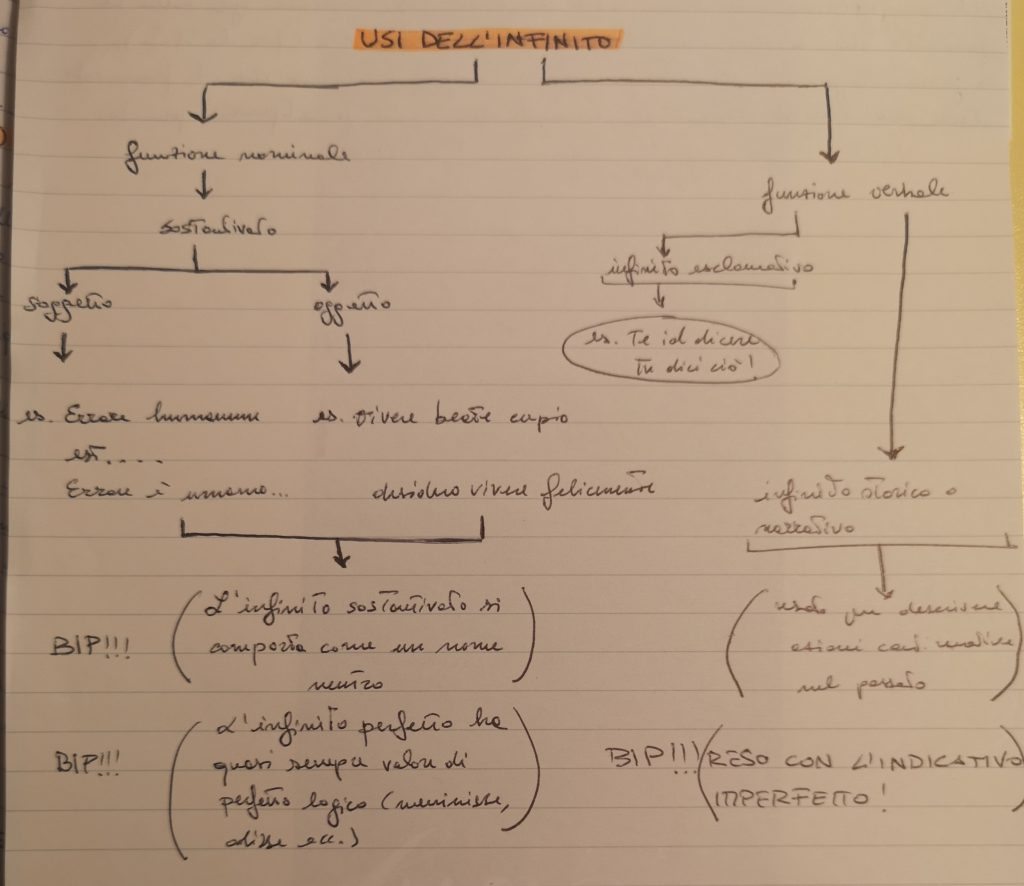 USI DELL'INFINITO
funzione nominale
funzione verbale
sostantivato
infinito esclamativo
soggetto
oggetto
es. Te id dicere
Tu dici ciò!
es. Errare humanum
est....
Errare è umano...
es. Vivere beate cupio
desidero vivere felicemente
infinito storico o
narrativo
BIP!!!
L'infinito sostantivato si
comporta come un nome
neutro
usato per descrivere
azioni continuative
nel passato
BIP!!!
L'infinito perfetto ha
quasi sempre valore di
perfetto logico (meminisse,
odisse ecc.)
BIP!!!
RESO CON L'INDICATIVO
IMPERFETTO!